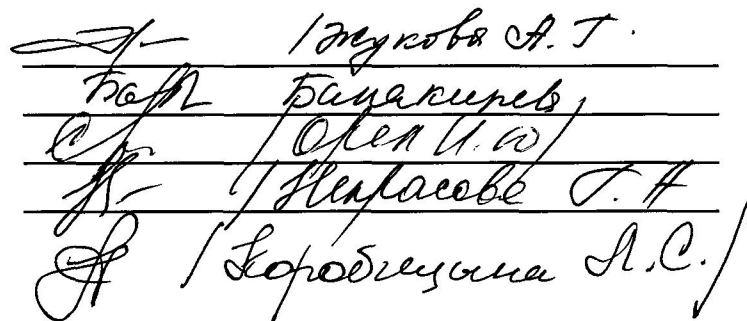 / Жукова А. Г.
Балакирева
/ Орел И. Ю /
/ Некрасова Г. Н
/ Коробицына Л. С. /